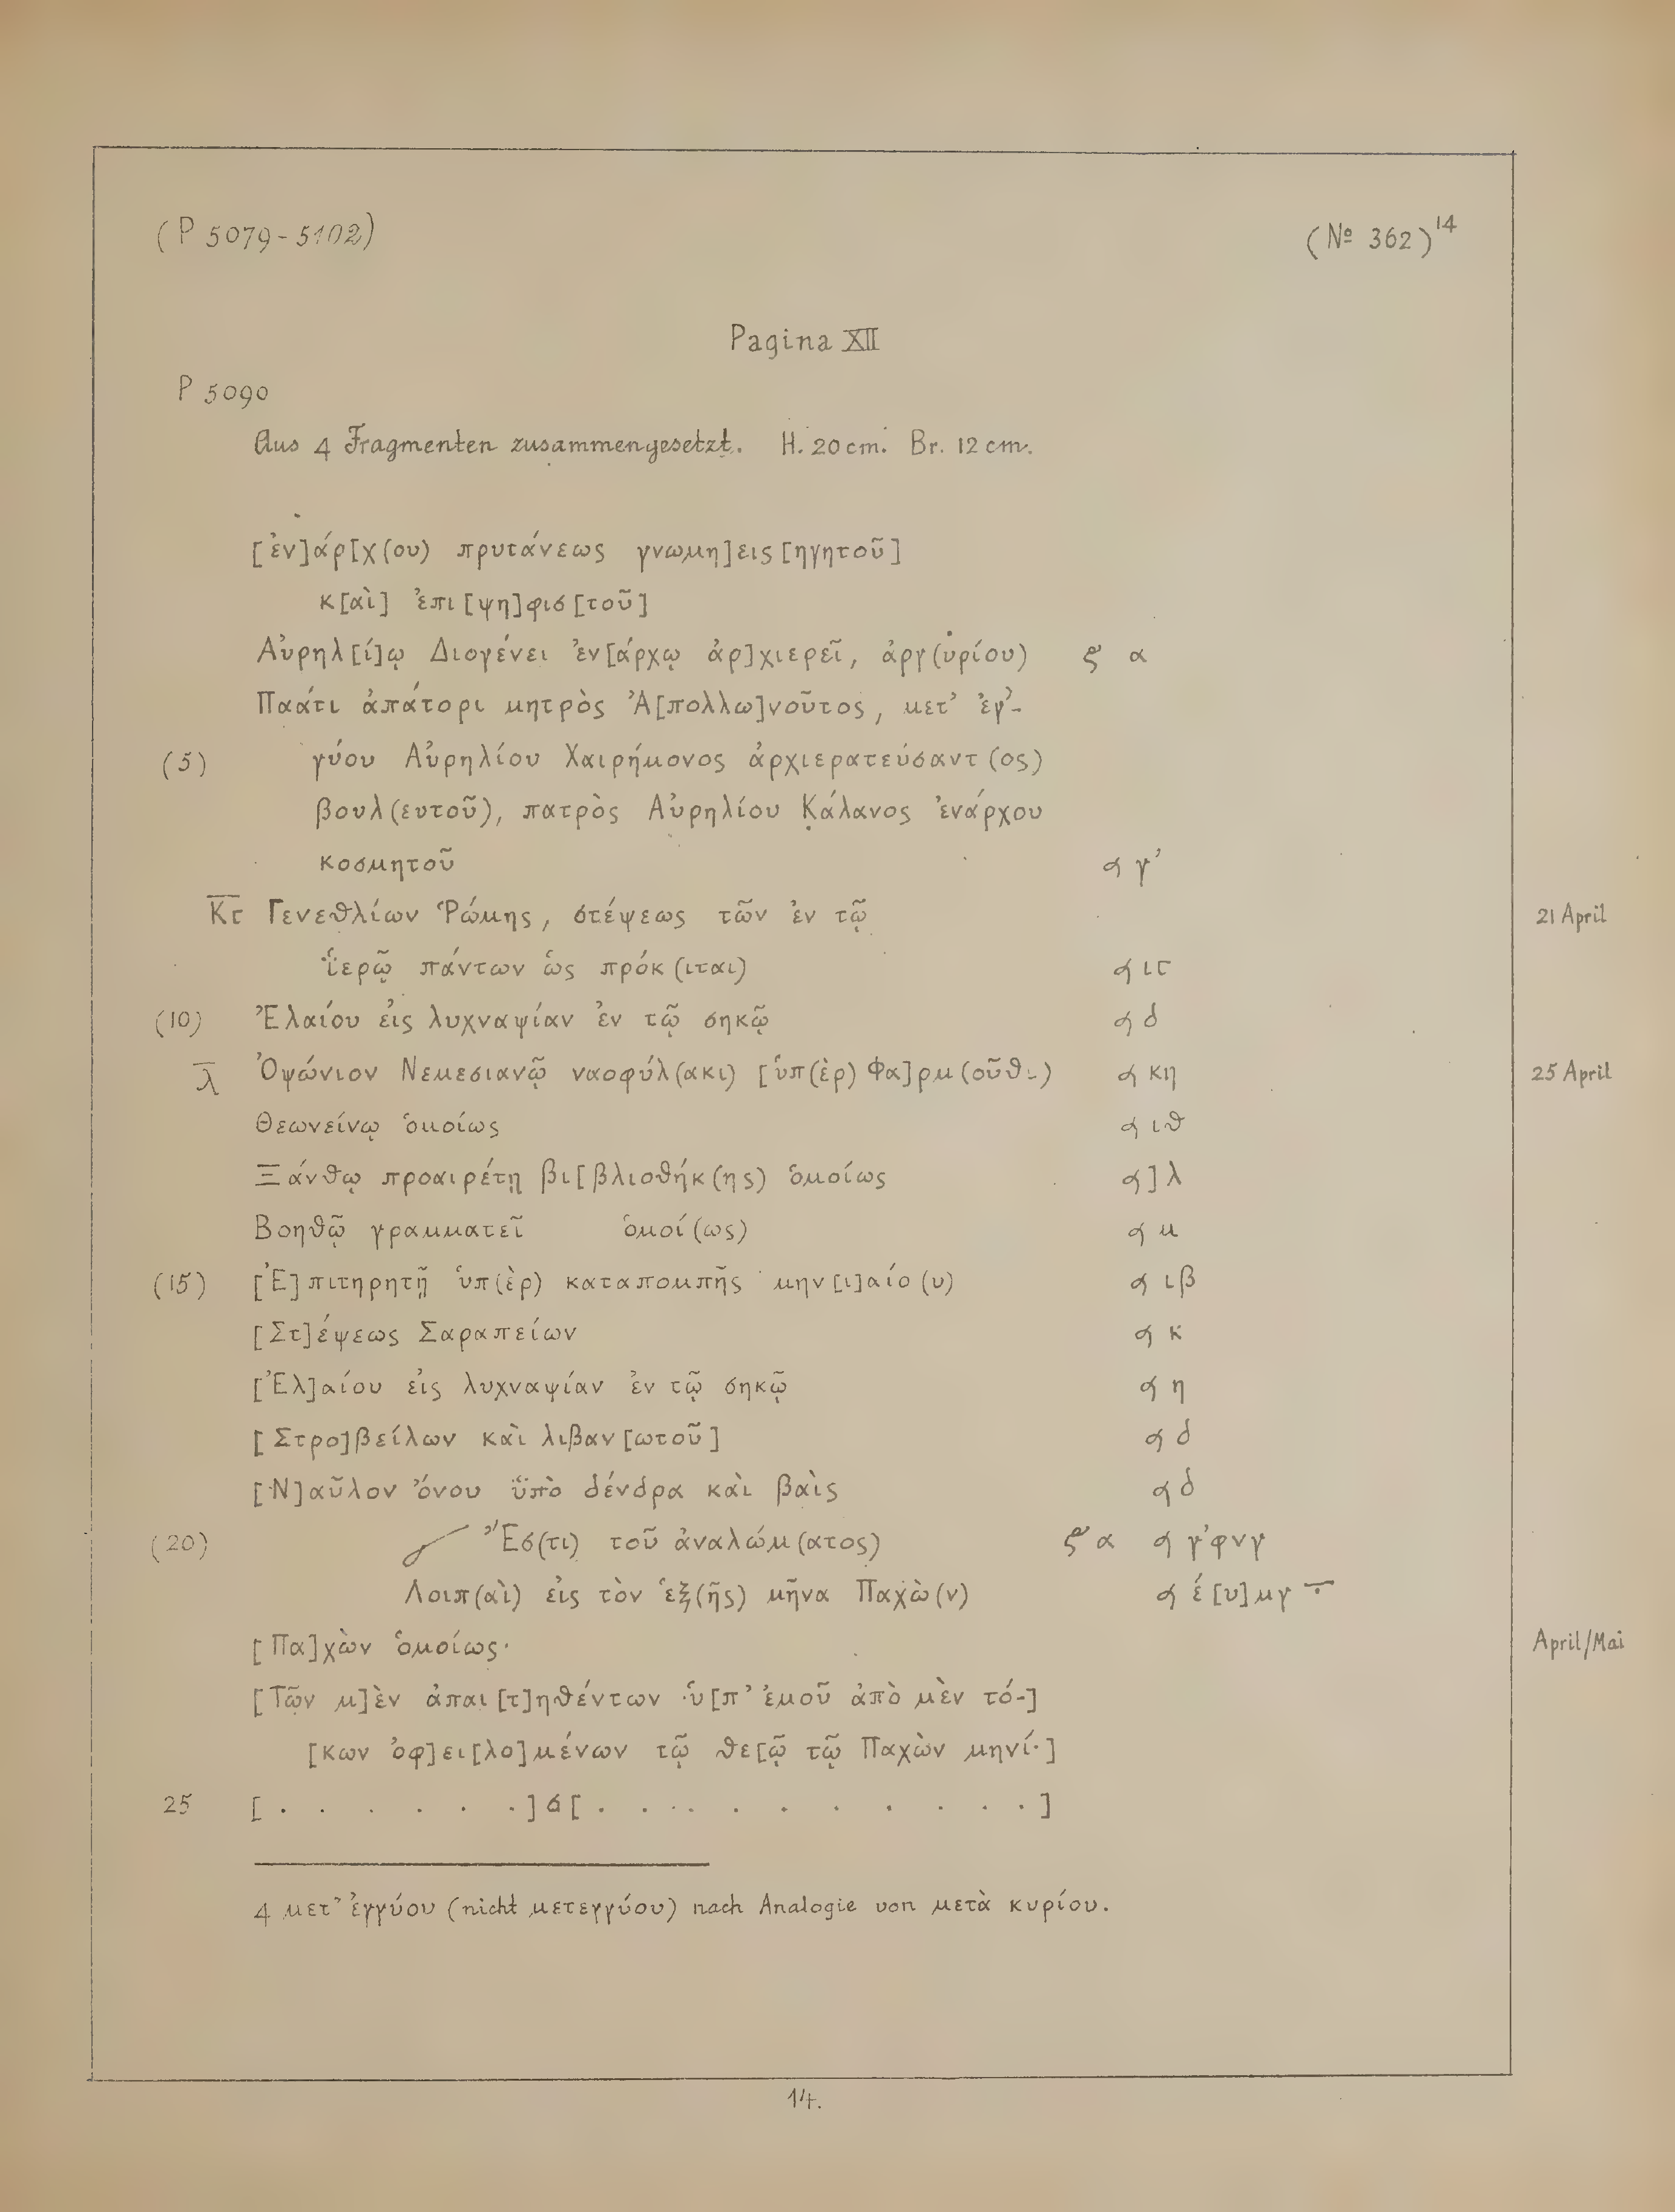 (P 5079-5102)
(№ 362)14
Pagina XII
P 5090
Aus 4 Fragmenten zusammengesetzt. H. 20 cm. Br. 12 cm.
[ἐν]άρ[χ(ου) πρυτάνεως γνωμη]εις[ηγητοῦ]
κ[αὶ] ἐπι[ψη]φισ[τοῦ]
Αὐρηλ[ί]ῳ Διογένει ἐν[άρχῳ ἀρ]χιερεῖ, ἀργ(υρίου) α
Παάτι ἀπάτορι μητρὸς Ἀ[πολλω]νοῦτος, μετ’ ἐγ’-
(5) γύου Αὐρηλίου Χαιρήμονος ἀρχιερατεύσαντ(ος)
βουλ(ευτοῦ), πατρὸς Αὐρηλίου Κάλανος ἐνάρχου
κοσμητοῦ γ’
Κϛ Γενεθλίων Ῥώμης, στέψεως τῶν ἐν τῷ 21 April
ἱερῷ πάντων ὡς πρόκ(ιται) ιϛ
(10) Ἐλαίου εἰς λυχναψίαν ἐν τῷ σηκῷ δ
λ Ὀψώνιον Νεμεσιανῷ ναοφύλ(ακι) [ὑπ(ὲρ) Φα]ρμ(οῦθι) κη 25 April
Θεωνείνῳ ὁμοίως ιθ
Ξάνθῳ προαιρέτῃ βι[βλιοθήκ(ης) ὁμοίως ] λ
Βοηθῷ γραμματεῖ ὁμοί(ως) μ
(15) [Ἐ]πιτηρητῇ ὑπ(ὲρ) καταπομπῆς μην[ι]αίο(υ) ιβ
[Στ]έψεως Σαραπείων κ
[Ἐλ]αίου εἰς λυχναψίαν ἐν τῷ σηκῷ η
[Στρο]βείλων καὶ λιβαν[ωτοῦ] δ
[Ν]αῦλον ὄνου ὑπὸ δένδρα καὶ βαὶς δ
(20) Ἔσ(τι) τοῦ ἀναλώμ(ατος) α γ’φνγ
Λοιπ(αὶ) εἰς τὸν ἑξ(ῆς) μῆνα Παχὼ(ν) έ[υ]μγ
[Πα]χὼν ὁμοίως· April/Mai
[Τῶν μ]ὲν ἀπαι[τ]ηθέντων ὑ[π’ ἐμοῦ ἀπὸ μὲν τό-]
[κων ὀφ]ει[λο]μένων τῷ θε[ῷ τῷ Παχὼν μηνί·]
25 [. . . . . .]σ[. . . . . . . . . . .]
4 μετ’ ἐγγύου (nicht μετεγγύου) nach Analogie von μετὰ κυρίου.
14.